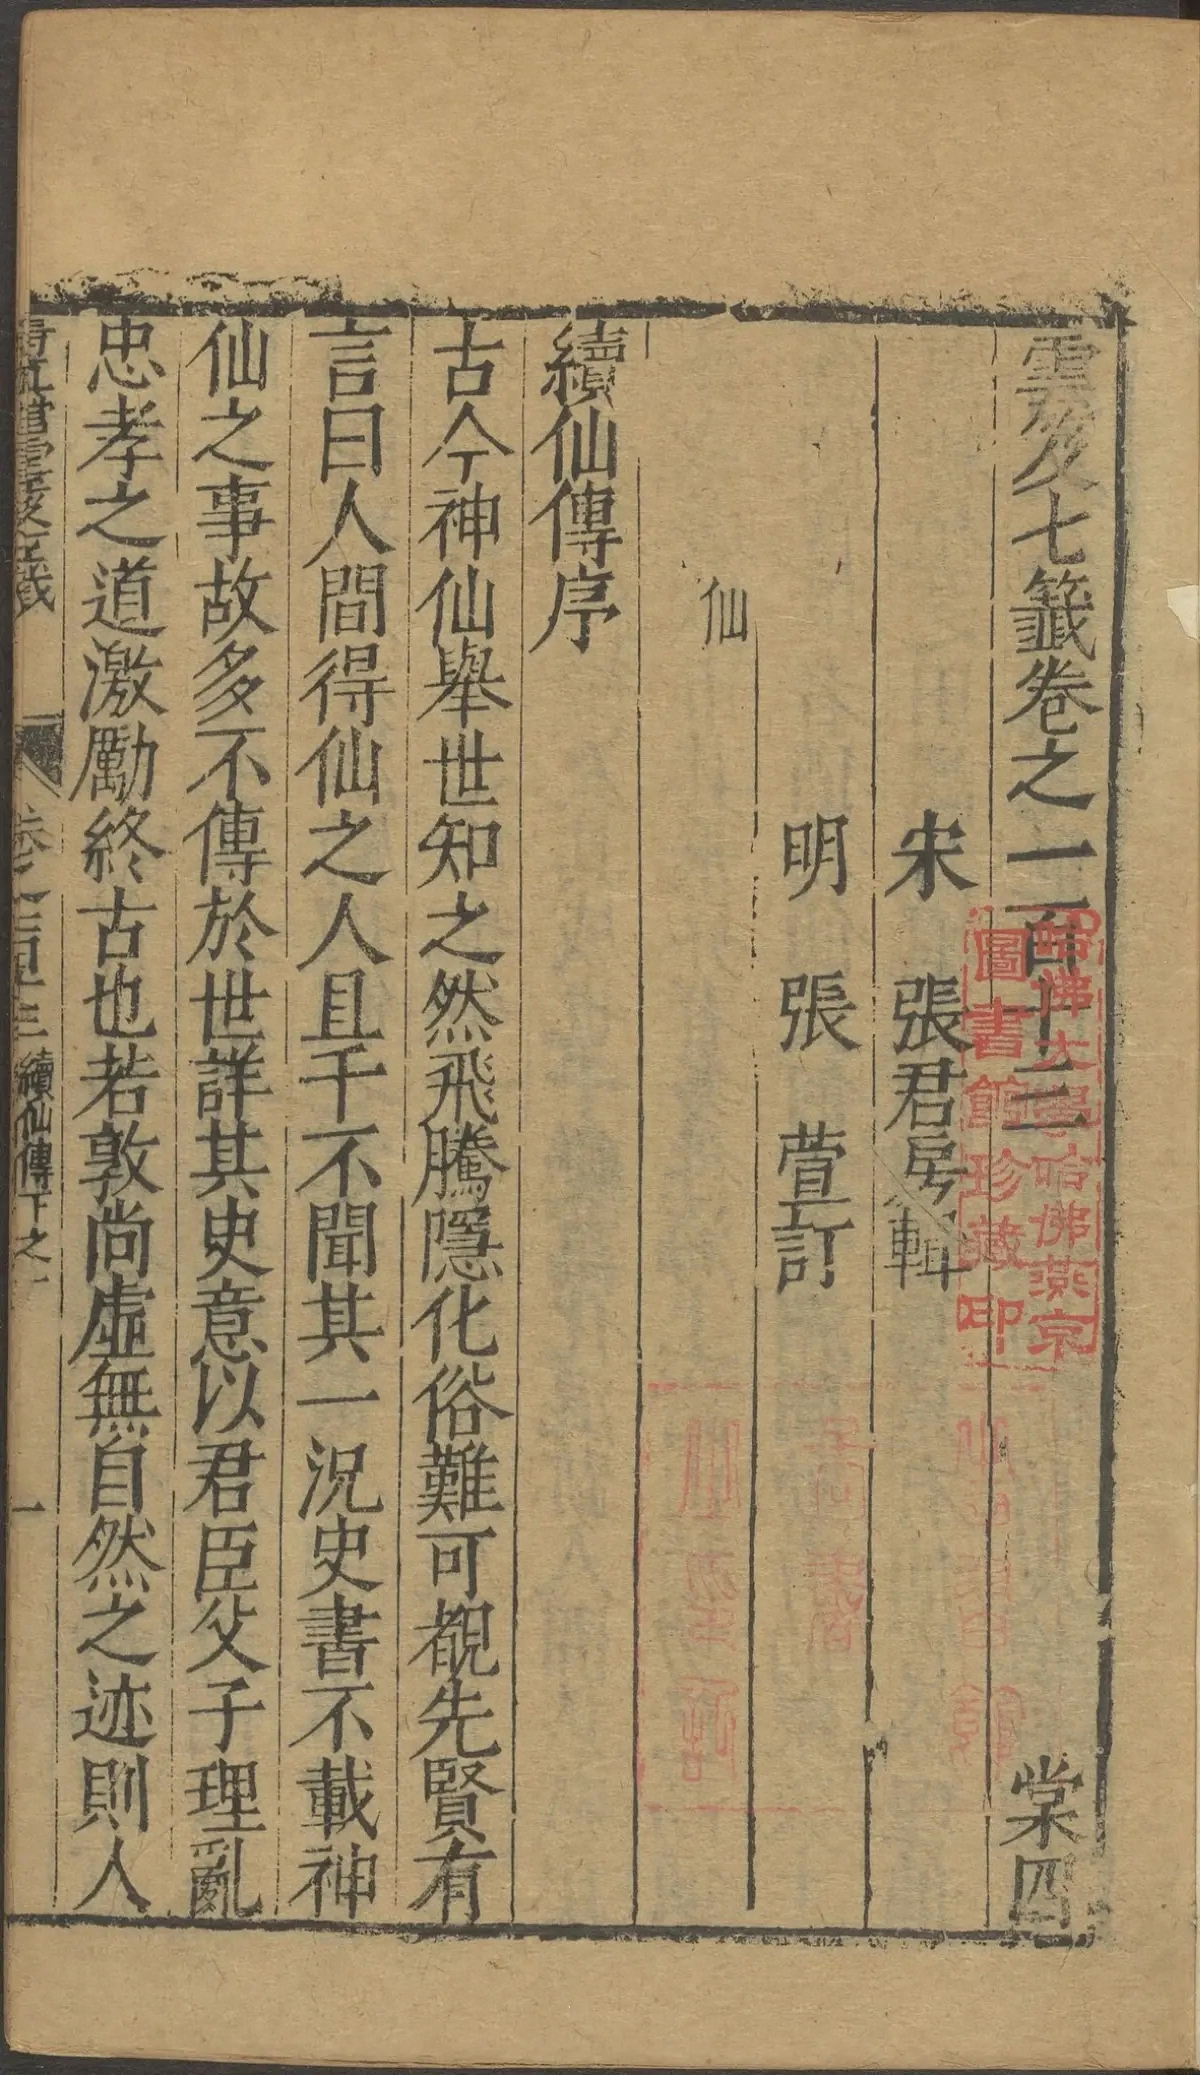 雲笈七籤卷之一百十三 棠四
宋 張君房輯
明 張 萱訂
仙
續仙傳序
古今神仙舉世知之然飛騰隱化俗難可覩先賢有
言曰人間得仙之人且千不聞其一況史書不載神
仙之事故多不傳於世詳其史意以君臣父子理亂
忠孝之道激勵終古也若敦尚虛無自然之迹則人
續仙傳下之
一
哈佛大學哈佛燕京
圖書館珍藏印